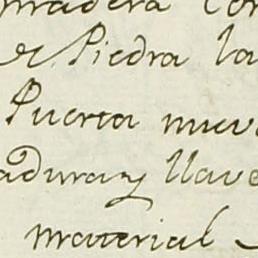 de Piedra la
Puerta nuev
adura y llave
material